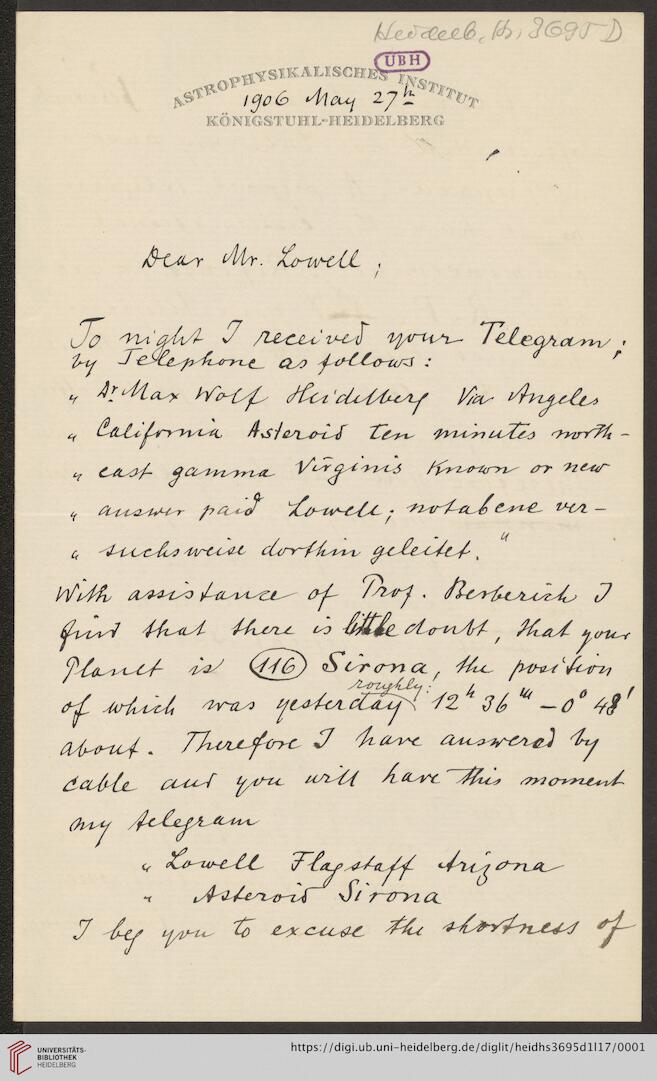 Heidelb. Hs. 3695 D
UBH
ASTROPHYSIKALISCHES INSTITUT
1906 May 27th
KÖNIGSTUHL-HEIDELBERG
Dear Mr. Lowell;
To night I received your Telegram;
by Telephone as follows:
„ Dr Max Wolf Heidelberg Via Angeles
„ California Asteroid ten minutes north-
„ east gamma Virginis Known or new
„ answer paid Lowell; notabene ver-
„ suchsweise dorthin geleitet. "
With assistance of Prof. Berberich I
find that there is little doubt, that your
Planet is (116) Sirona, the position
roughly:
of which was yesterday 12h 36m – 0° 48'
about. Therefore I have answered by
cable and you will have this moment
my telegram
„ Lowell Flagstaff Arizona
„ Asteroid Sirona
I beg you to excuse the shortness of
UNIVERSITÄTS-
BIBLIOTHEK
HEIDELBERG
https://digi.ub.uni-heidelberg.de/diglit/heidhs3695d1l17/0001